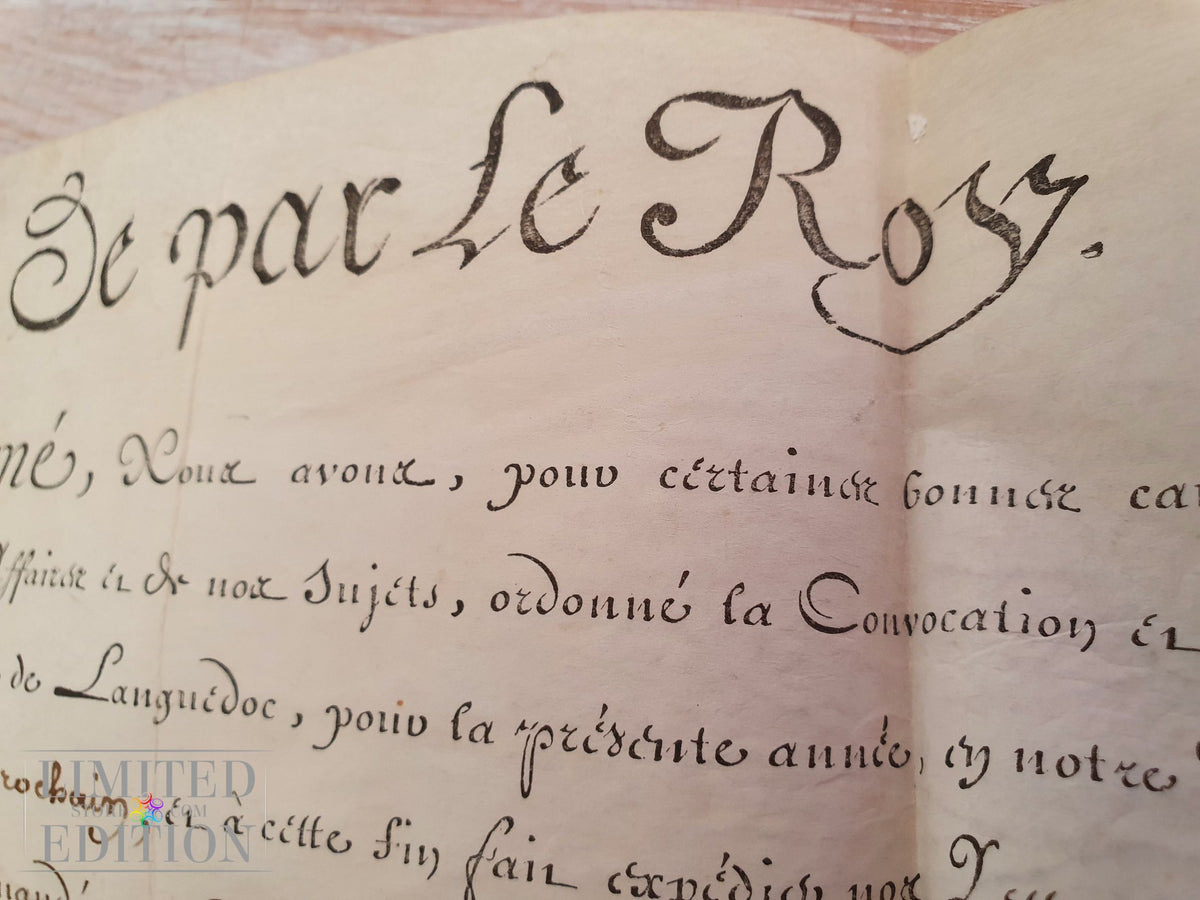 De par Le Roy.
mé, Nous avons, pour certaines bonnes
Affaires et de nos Sujets, ordonné la Convocation et
de Languedoc, pour la présente année, en notre
rochain, et à cette fin fait expédier nos
LIMITED
EDITION